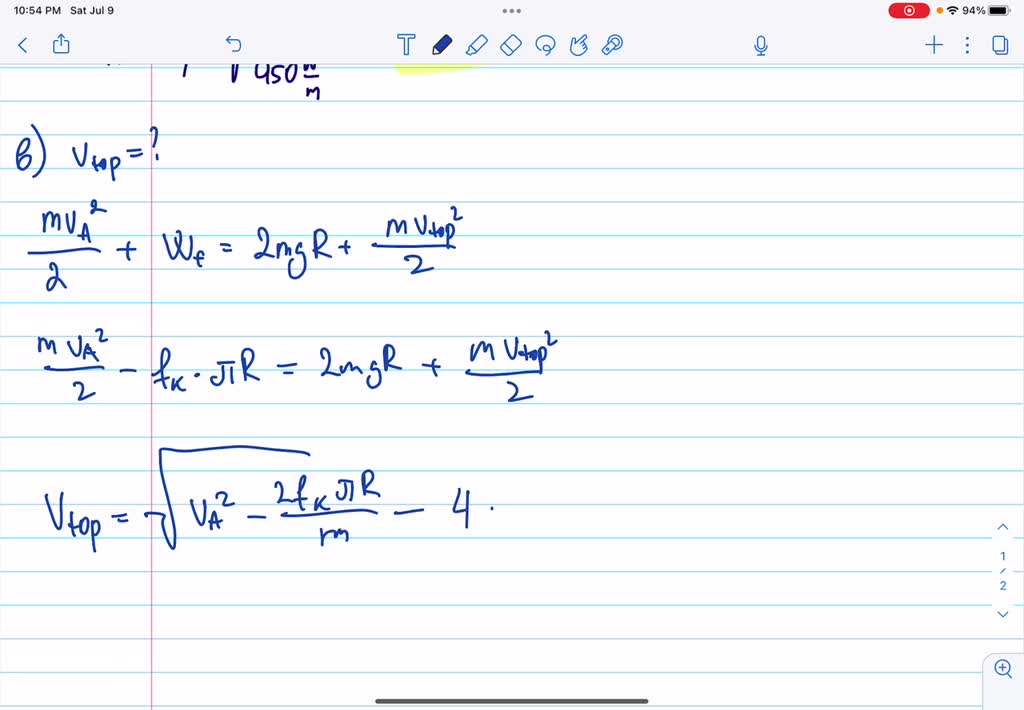 10:54 PM Sat Jul 9
94%
450 N/m
b) V_top = ?
mV_A²/2 + W_f = 2mgR + mV_top²/2
mV_A²/2 - f_k · πR = 2mgR + mV_top²/2
V_top = √(V_A² - 2f_kπR/m - 4 ·
1
/
2